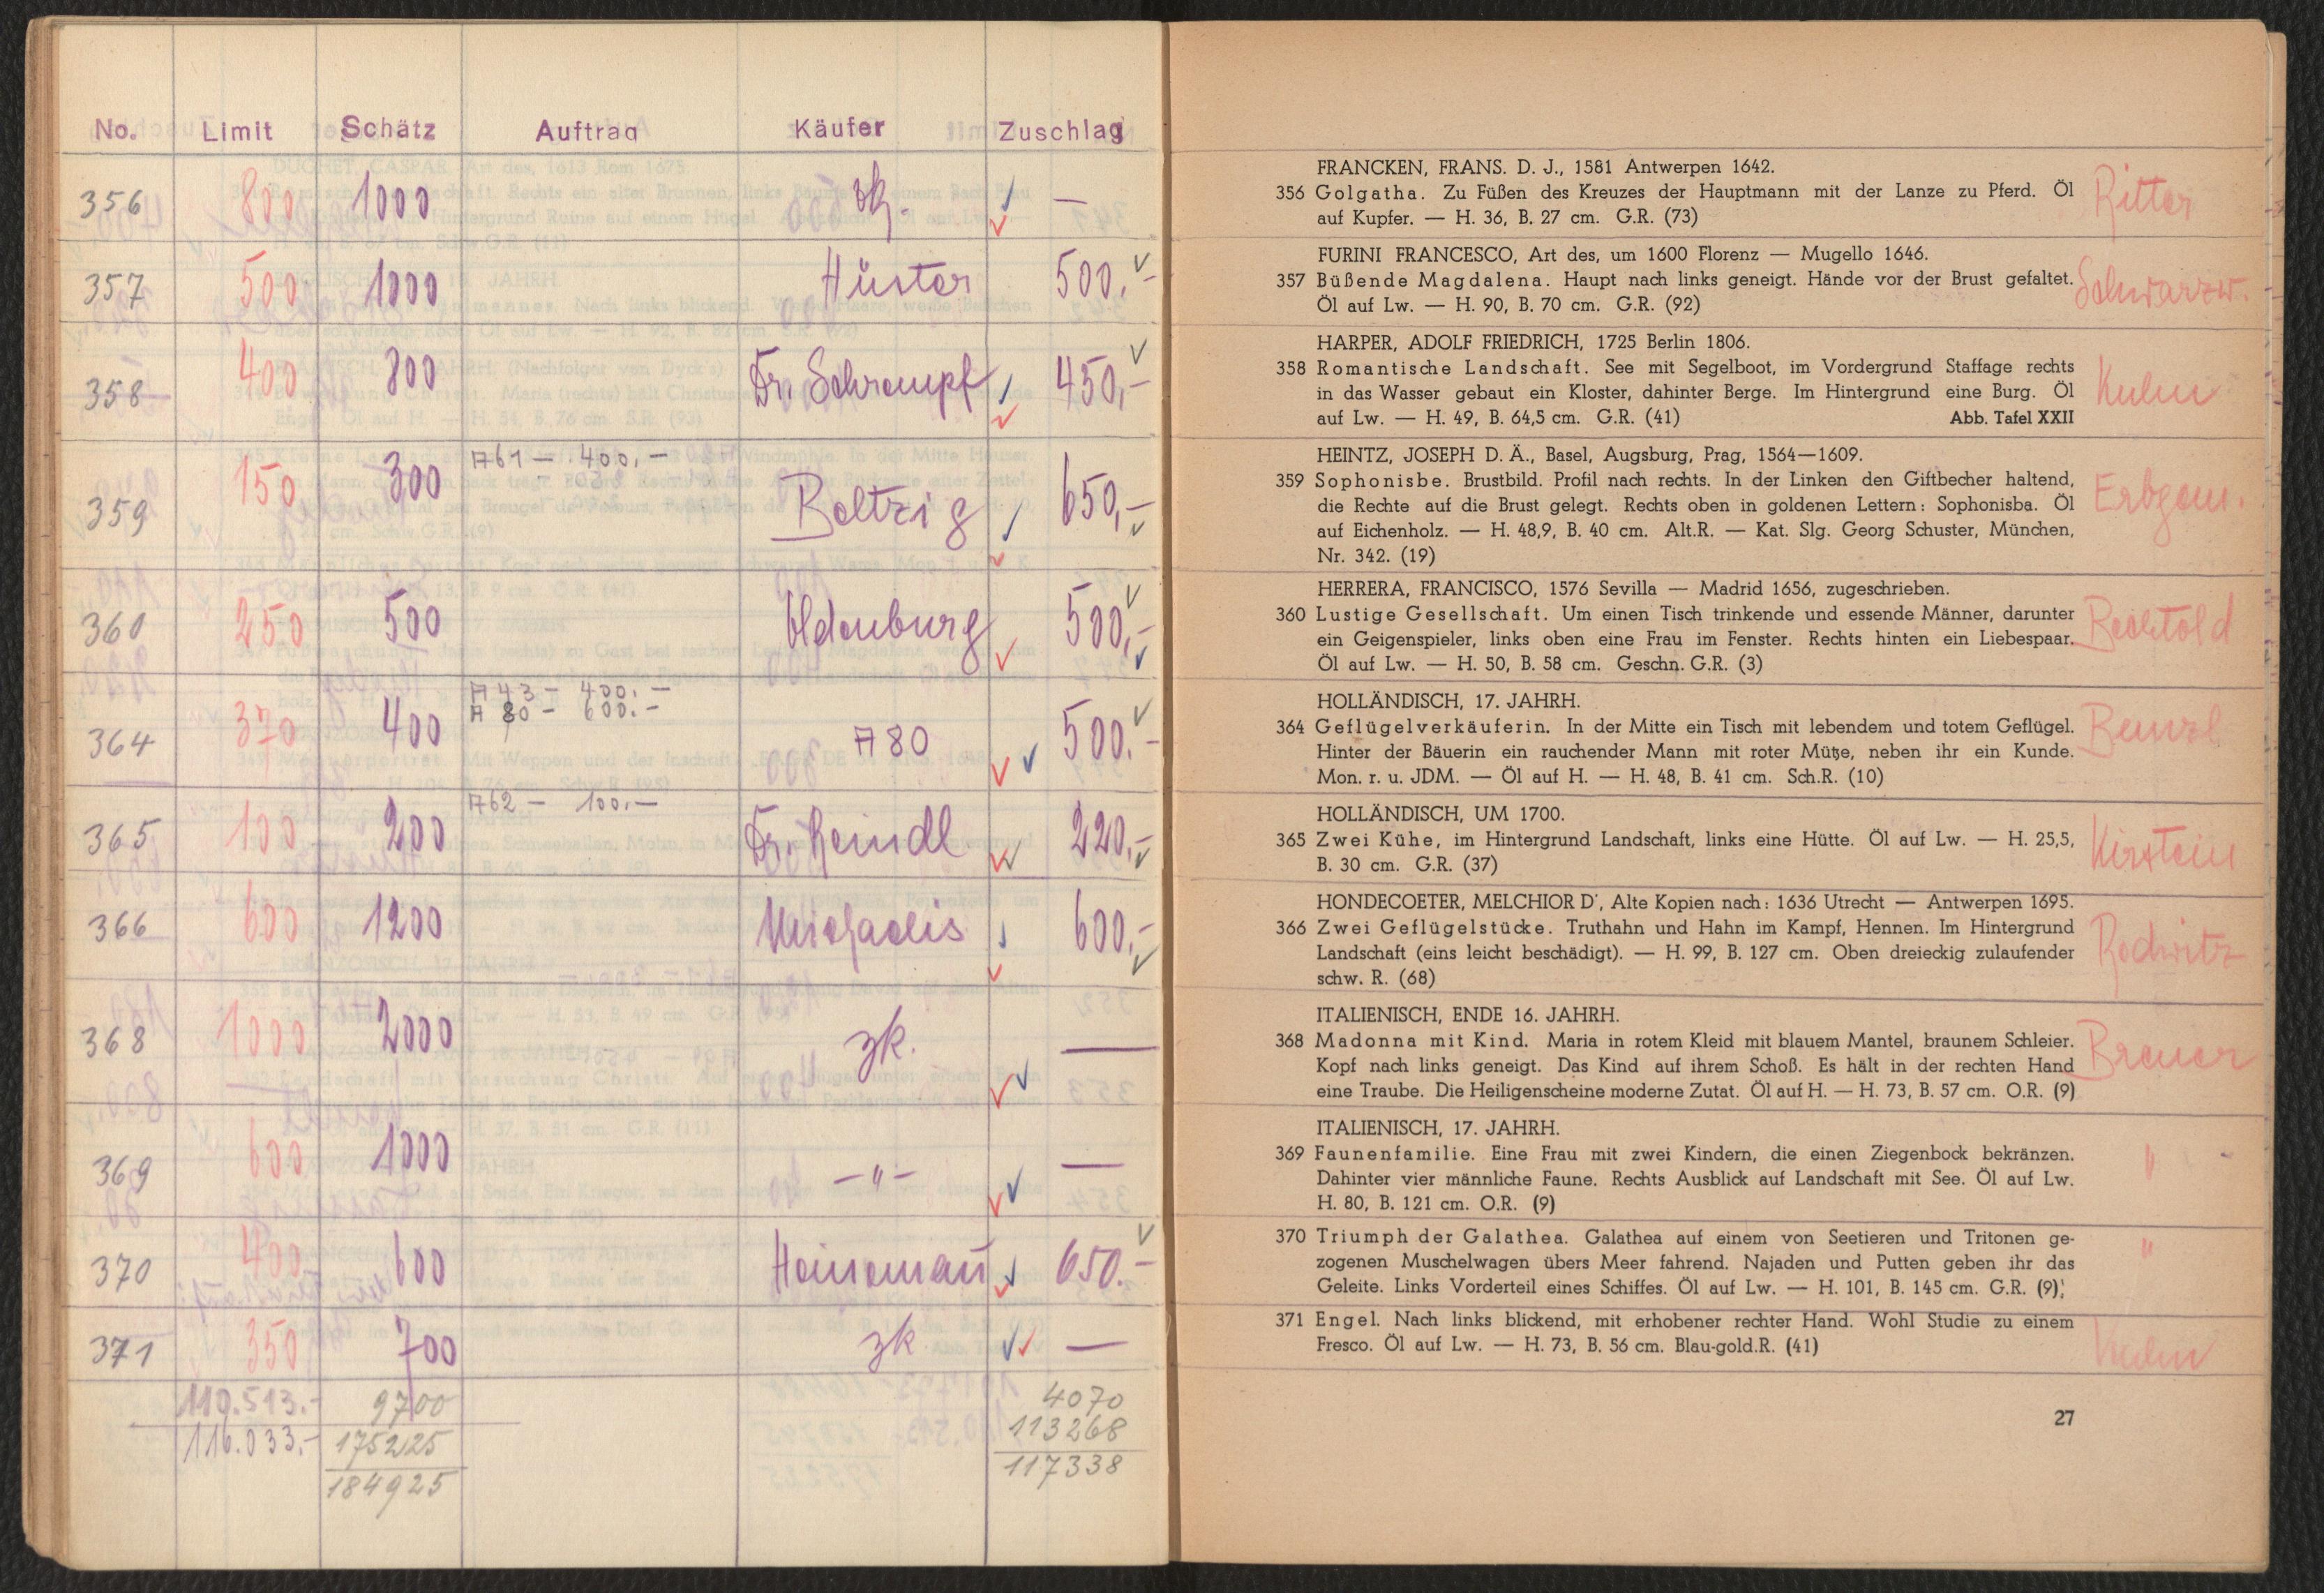 No. Limit Schätz Auftrag Käufer Zuschlag
356 800 1000 zk. —
357 500 1000 Hüster 500,-
358 400 800 Dr. Schrempf 450,-
A61 — 400,—
359 150 300 Beltzig 650,-
360 250 500 Oldenburg 500,-
A43 - 400.-
A 80 - 600.-
364 370 400 A80 500.-
A62 - 100.-
365 100 200 Dr. Reindl 220,-
366 600 1200 Michaelis 600,-
368 1000 2000 zk. —
369 600 1000 -"- —
370 400 600 Heinemañ 650.-
371 350 700 zk —
110.513.- 9700 4070
116.033.- 175225 113268
184925 117338
FRANCKEN, FRANS. D. J., 1581 Antwerpen 1642.
356 Golgatha. Zu Füßen des Kreuzes der Hauptmann mit der Lanze zu Pferd. Öl
auf Kupfer. — H. 36, B. 27 cm. G.R. (73)
Ritter
FURINI FRANCESCO, Art des, um 1600 Florenz — Mugello 1646.
357 Büßende Magdalena. Haupt nach links geneigt. Hände vor der Brust gefaltet.
Öl auf Lw. — H. 90, B. 70 cm. G.R. (92)
Schwarzw.
HARPER, ADOLF FRIEDRICH, 1725 Berlin 1806.
358 Romantische Landschaft. See mit Segelboot, im Vordergrund Staffage rechts
in das Wasser gebaut ein Kloster, dahinter Berge. Im Hintergrund eine Burg. Öl
auf Lw. — H. 49, B. 64,5 cm. G.R. (41) Abb. Tafel XXII
HEINTZ, JOSEPH D. Ä., Basel, Augsburg, Prag, 1564—1609.
359 Sophonisbe. Brustbild. Profil nach rechts. In der Linken den Giftbecher haltend,
die Rechte auf die Brust gelegt. Rechts oben in goldenen Lettern: Sophonisba. Öl
auf Eichenholz. — H. 48,9, B. 40 cm. Alt.R. — Kat. Slg. Georg Schuster, München,
Nr. 342. (19)
HERRERA, FRANCISCO, 1576 Sevilla — Madrid 1656, zugeschrieben.
360 Lustige Gesellschaft. Um einen Tisch trinkende und essende Männer, darunter
ein Geigenspieler, links oben eine Frau im Fenster. Rechts hinten ein Liebespaar.
Öl auf Lw. — H. 50, B. 58 cm. Geschn. G.R. (3)
Bechtold
HOLLÄNDISCH, 17. JAHRH.
364 Geflügelverkäuferin. In der Mitte ein Tisch mit lebendem und totem Geflügel.
Hinter der Bäuerin ein rauchender Mann mit roter Mütze, neben ihr ein Kunde.
Mon. r. u. JDM. — Öl auf H. — H. 48, B. 41 cm. Sch.R. (10)
HOLLÄNDISCH, UM 1700.
365 Zwei Kühe, im Hintergrund Landschaft, links eine Hütte. Öl auf Lw. — H. 25,5,
B. 30 cm. G.R. (37)
Kirstein
HONDECOETER, MELCHIOR D', Alte Kopien nach: 1636 Utrecht — Antwerpen 1695.
366 Zwei Geflügelstücke. Truthahn und Hahn im Kampf, Hennen. Im Hintergrund
Landschaft (eins leicht beschädigt). — H. 99, B. 127 cm. Oben dreieckig zulaufender
schw. R. (68)
ITALIENISCH, ENDE 16. JAHRH.
368 Madonna mit Kind. Maria in rotem Kleid mit blauem Mantel, braunem Schleier.
Kopf nach links geneigt. Das Kind auf ihrem Schoß. Es hält in der rechten Hand
eine Traube. Die Heiligenscheine moderne Zutat. Öl auf H. — H. 73, B. 57 cm. O.R. (9)
Breuer
ITALIENISCH, 17. JAHRH.
369 Faunenfamilie. Eine Frau mit zwei Kindern, die einen Ziegenbock bekränzen.
Dahinter vier männliche Faune. Rechts Ausblick auf Landschaft mit See. Öl auf Lw.
H. 80, B. 121 cm. O.R. (9)
"
370 Triumph der Galathea. Galathea auf einem von Seetieren und Tritonen ge-
zogenen Muschelwagen übers Meer fahrend. Najaden und Putten geben ihr das
Geleite. Links Vorderteil eines Schiffes. Öl auf Lw. — H. 101, B. 145 cm. G.R. (9)
"
371 Engel. Nach links blickend, mit erhobener rechter Hand. Wohl Studie zu einem
Fresco. Öl auf Lw. — H. 73, B. 56 cm. Blau-gold.R. (41)
27